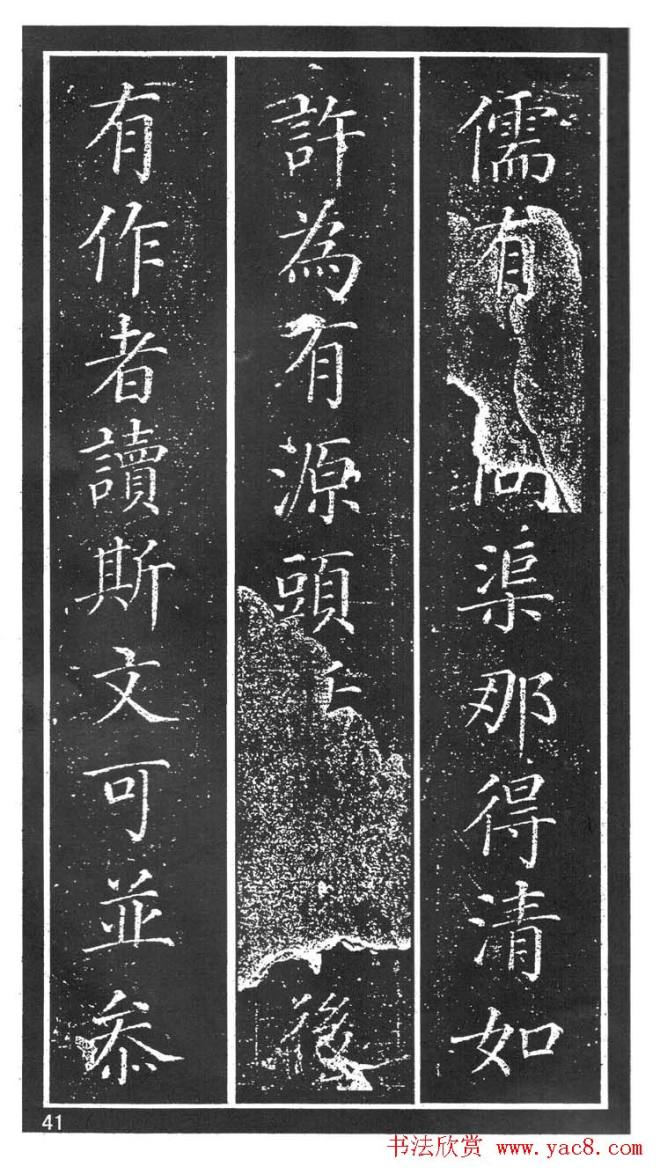 儒有渠那得清如
許為有源頭後
有作者讀斯文可並叅
41
书法欣赏 www.yac8.com